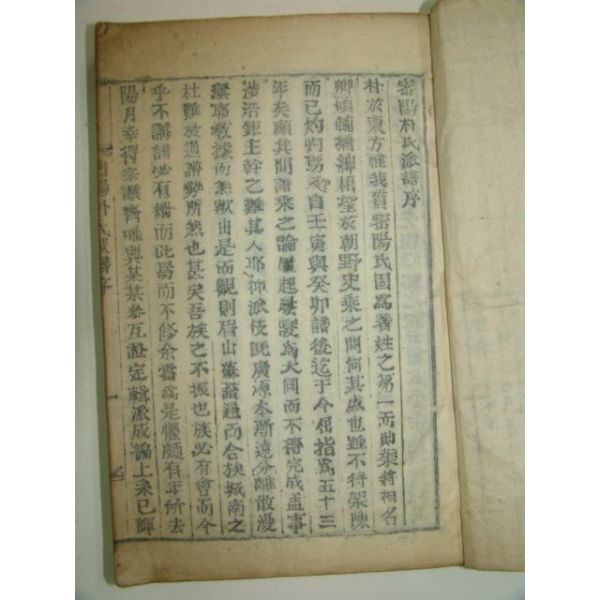 密陽朴氏派譜序
朴於東方惟我貫密陽氏固爲著姓之第一而勛業將相名
卿娘輔擔綽稠望於朝野史乘之間何其盛也雖不待架陳
而已灼灼易 自壬寅與癸卯譜後迄于今屈指爲五十三
年矣顧其間譜乘之論屢起屢 爲大同而不得完成盖事
浩鉅主幹之難其人耶抑派枝旣廣源本漸遠分離散漫
無耶敎據而無 出是 觀則眉山 譜通而合族城南之
杜難 過譜勢所然也甚矣吾族之不振也族必有會而今
乎不 譜必有 而此 而不修余嘗爲是懼頗有年所去
陽月幸得宗議齊唯與某某參互證定輯派成編上系已
密陽朴氏派譜序 一